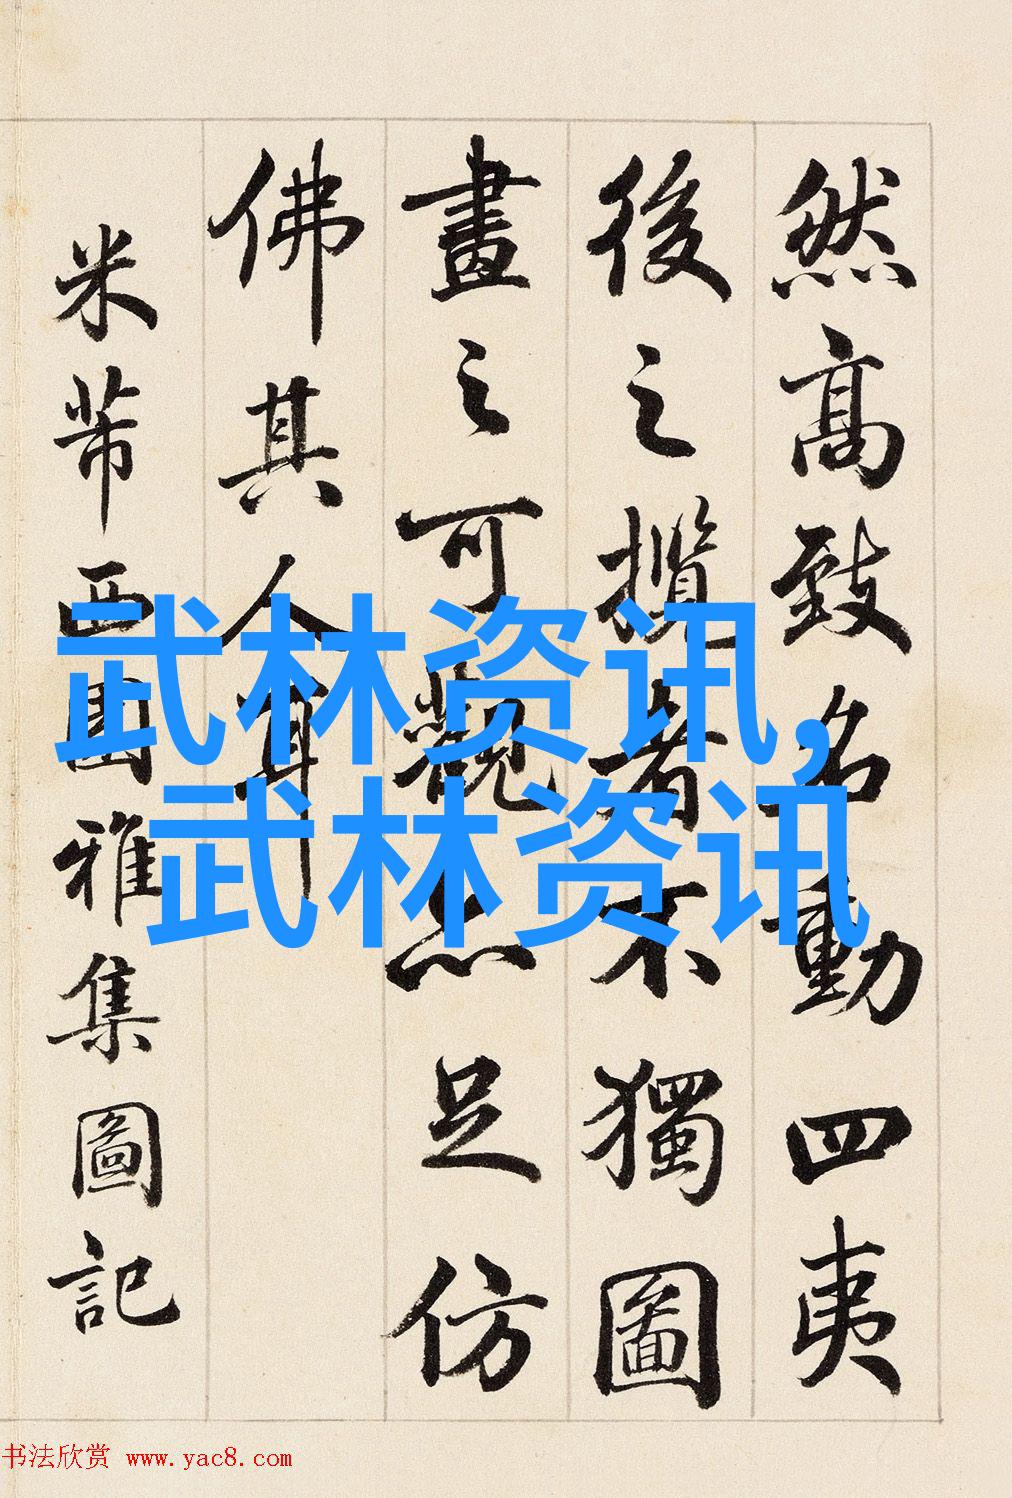 然高致名動四夷
後之攬者不獨圖
畫之可觀亦足仿
佛其人耳
米芾西園雅集圖記
武林资讯,
武林资讯
书法欣赏 www.yac8.com